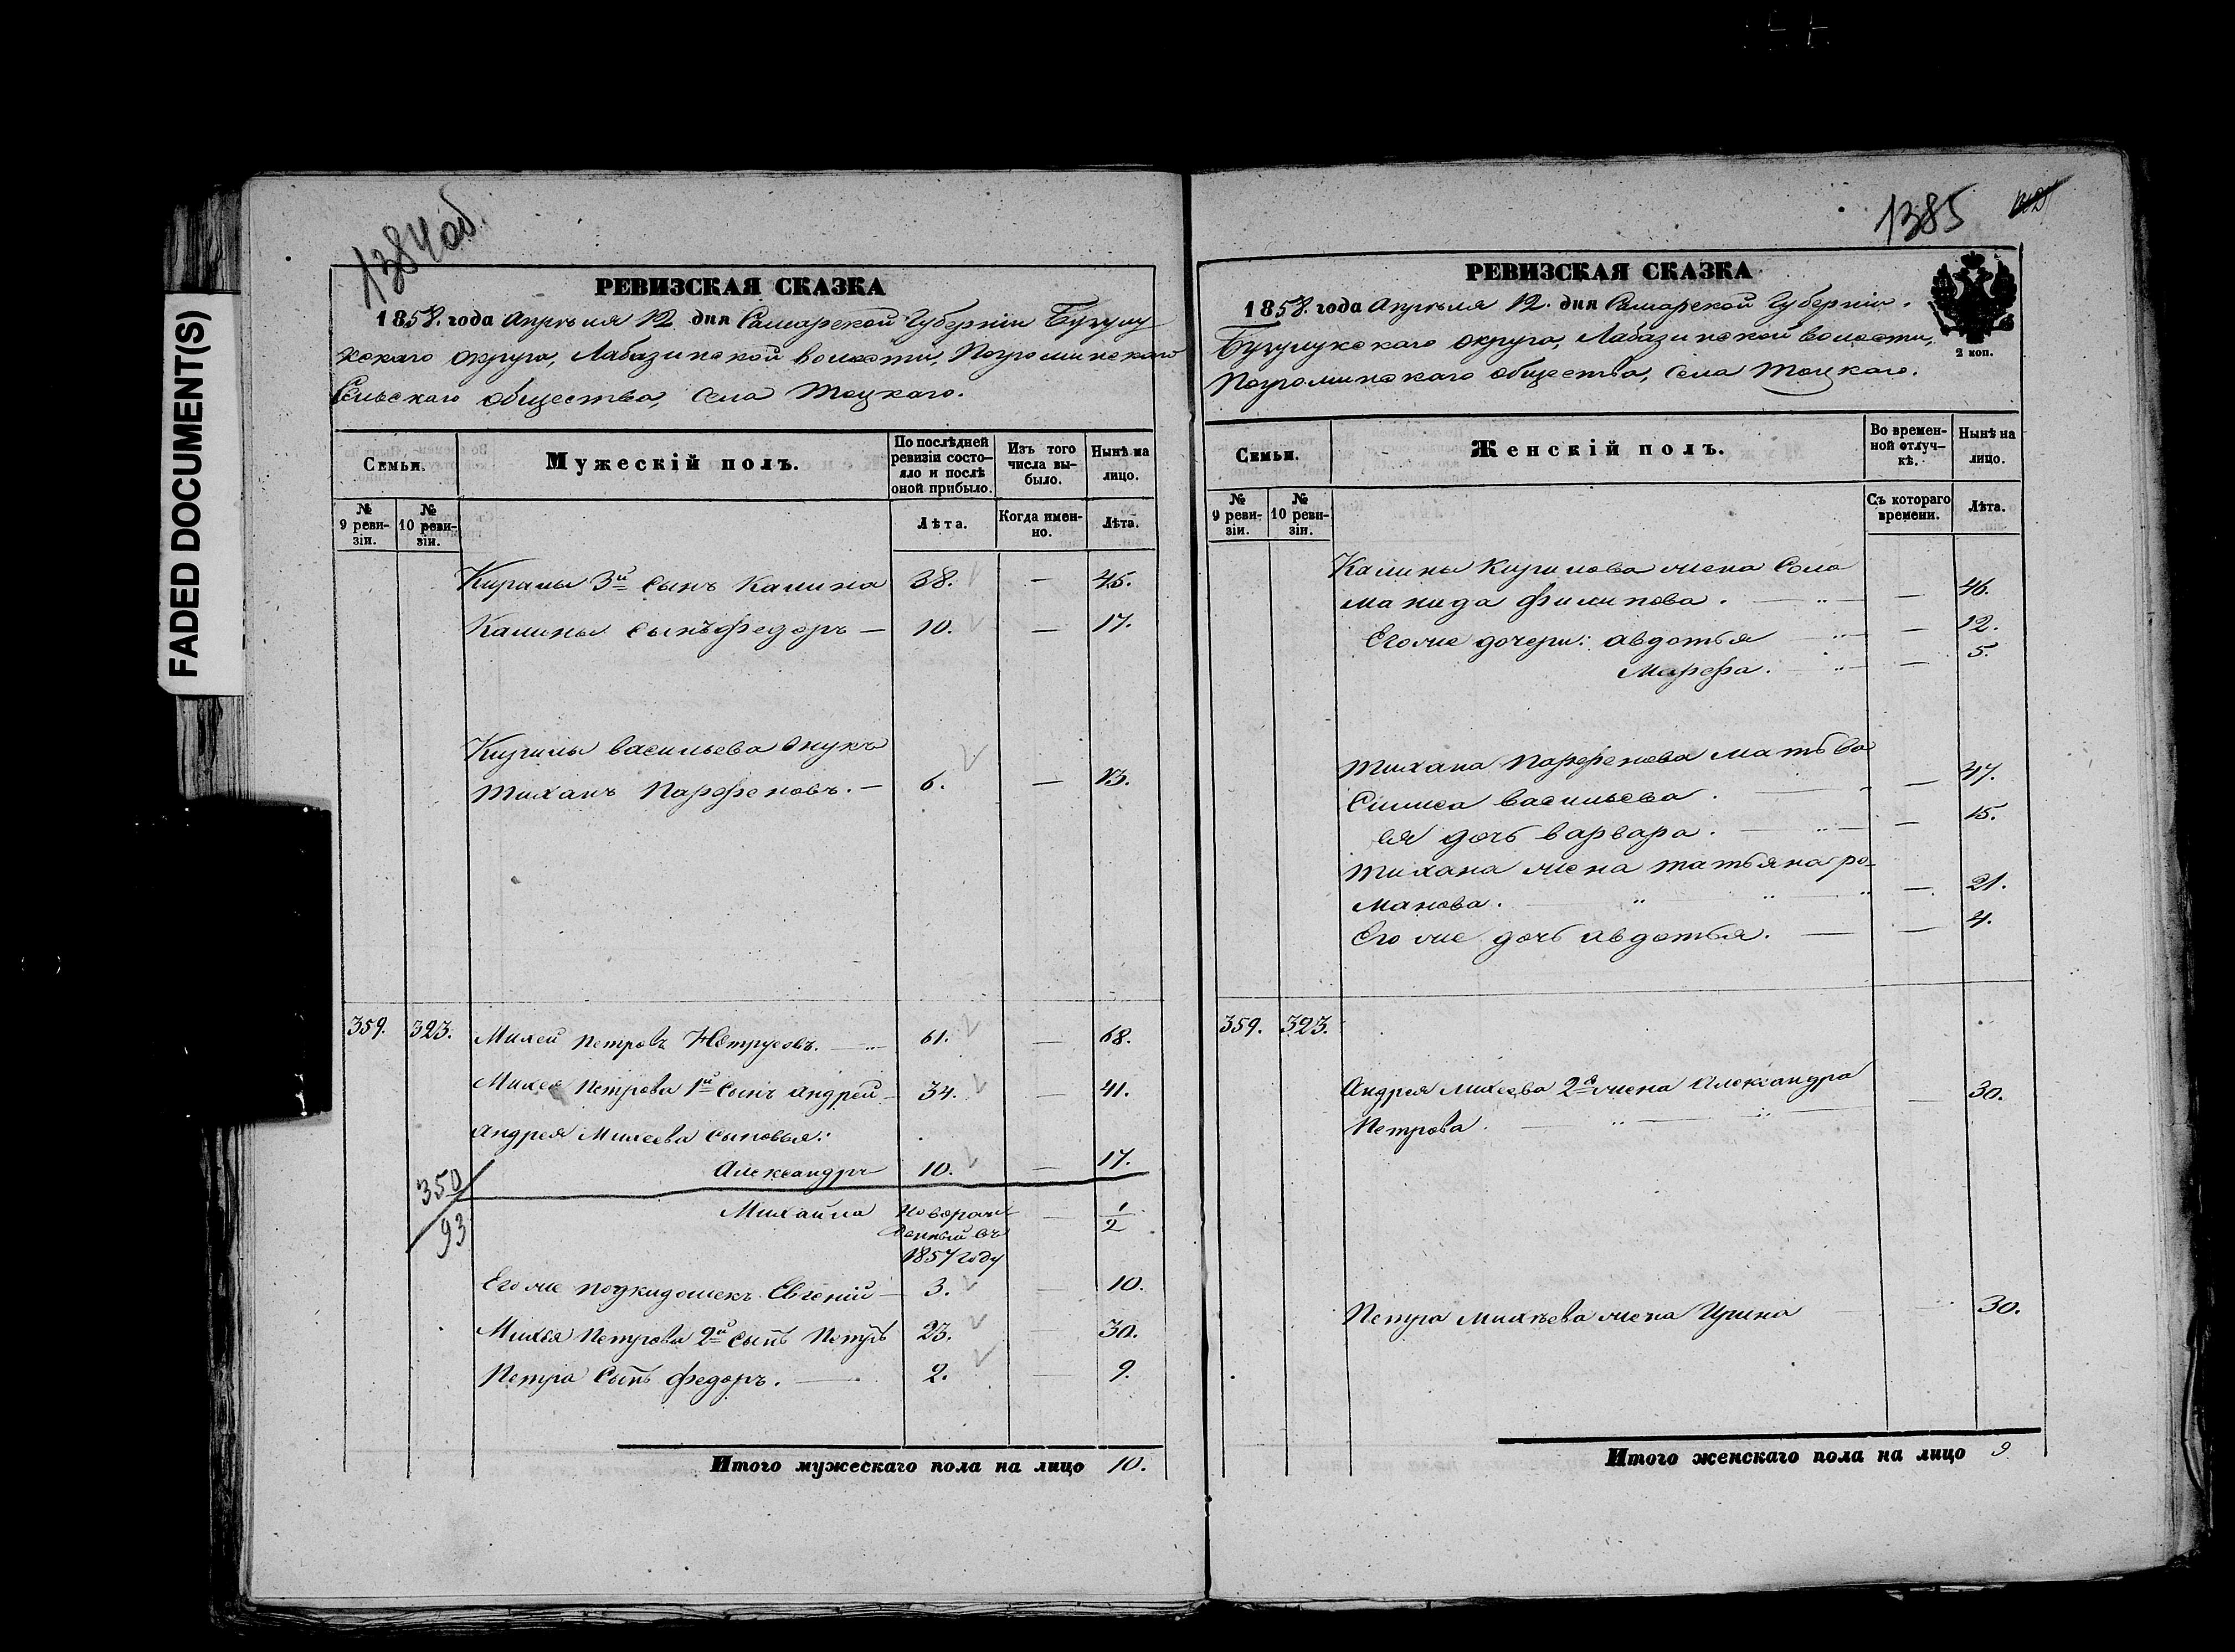 FADED DOCUMENT(S)
1384 об.
РЕВИЗСКАЯ СКАЗКА
1858. года Апрѣля 12 дня Самарской Губерніи Бугулу
скаго округа, Лабазинской волости, Погроминскаго
Сельскаго общества, села Тоцкаго.
Семьи.
Мужескій полъ.
По послѣдней ревизіи состо-яло и послѣ оной прибыло.
Изъ того числа вы-было.
Нынѣ на лицо.
№ 9 реви-зіи.
№ 10 реви-зіи.
Лѣта.
Когда имен-но.
Лѣта.
Кирилы 3й сынъ Калина 38. — 45.
Калины сынъ Федоръ — 10. — 17.
Кирилы Васильева внукъ
Тиханъ Парфеновъ. — 6. — 13.
359. 323. Михей Петровъ 61. — 68.
Михея Петрова 1й сынъ Андрей 34. — 41.
Андрея Михеева сыновья:
Александръ 10. — 17.
350/93
Михайла новорож — 1/2
денный въ
1857 году
Его же подкидошекъ Евгеній — 3. — 10.
Михея Петрова 2й сынъ Петръ 23. 30.
Петра сынъ Федоръ. — 2. — 9.
Итого мужескаго пола на лицо 10.
1385
РЕВИЗСКАЯ СКАЗКА
1858. года Апрѣля 12. дня Самарской Губерніи.
Бугулукскаго округа, Лабазинской волости,
Погроминскаго общества, села Тоцкаго.
2 коп.
Семьи.
Женскій полъ.
Во времен-ной отлуч-кѣ.
Нынѣ на лицо.
№ 9 реви-зіи.
№ 10 реви-зіи.
Съ котораго времени.
Лѣта.
Калины Кирилова жена Соло
манида Филипова. — — 46.
Его же дочери: Авдотья — 12.
Марфа. — — 5.
Тихана Парфенова мать Ва
силиса Васильева. — — 47.
ея дочь Варвара. — — 15.
Тихана жена Татьяна Ро-
манова. — — 21.
Его же дочь Авдотья. — — 4.
359. 323.
Андрея Михеева 2я жена Александра
Петрова. — — 30.
Петра Михѣева жена Ирина 30.
Итого женскаго пола на лицо 9